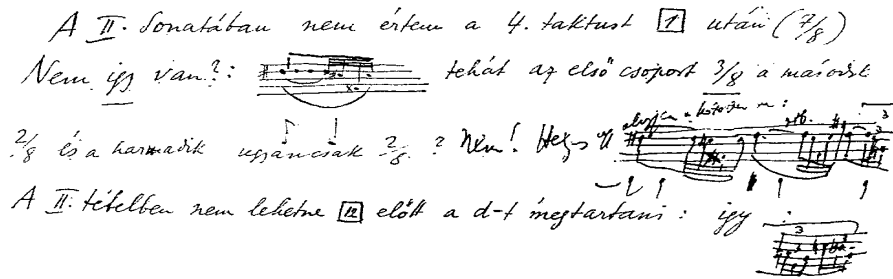 A II. Sonatában nem értem a 4. taktust 1 után (7/8)
Nem így van?: tehát az első csoport 3/8 a második
2/8 és a harmadik ugyancsak 2/8 ? Nem!
A II. tételben nem lehetne 12 előtt a d-t megtartani : így :